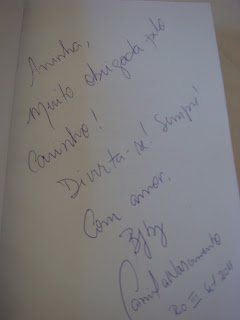 Aninha,
Muito obrigada pelo
carinho!
Divirta-se! Sempre!
Com amor,
Bjbj
Camila Nascimento